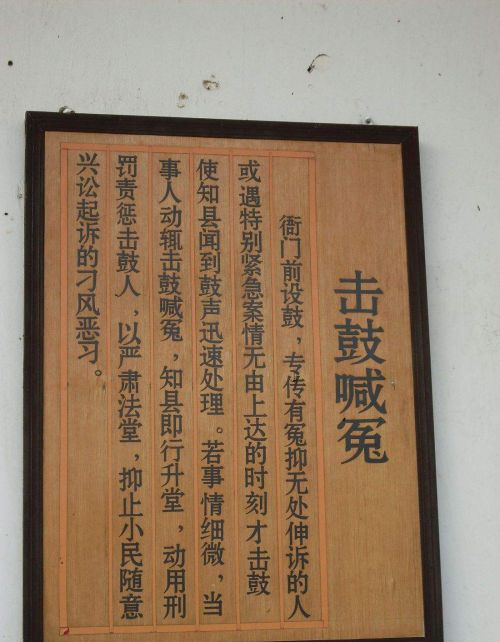 击鼓喊冤
衙门前设鼓，专传有冤抑无处伸诉的人
或遇特别紧急案情无由上达的时刻才击鼓
使知县闻到鼓声迅速处理。若事情细微，当
事人动辄击鼓喊冤，知县即行升堂，动用刑
罚责惩击鼓人，以严肃法堂，抑止小民随意
兴讼起诉的刁风恶习。